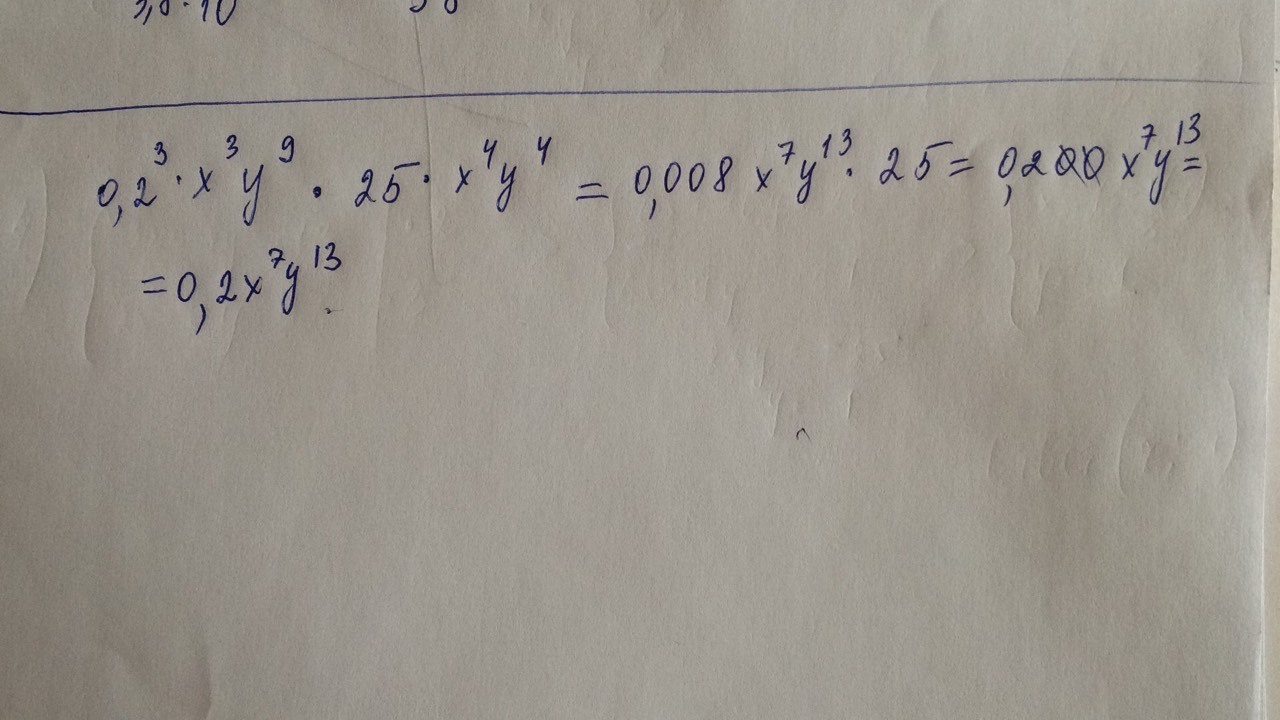 0,2³ · x³y⁹ · 25 · x⁴y⁴ = 0,008 x⁷y¹³ · 25 = 0,200 x⁷y¹³ =
= 0,2x⁷y¹³